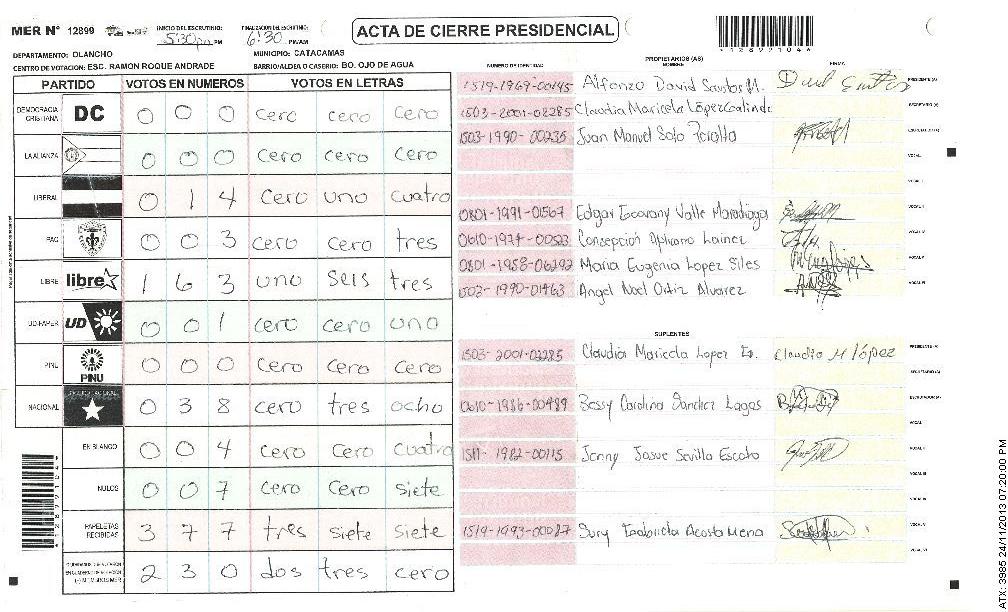 MER N° 12899 INICIO DEL ESCRUTINIO: 5:30 pm PM FINALIZACION DEL ESCRUTINIO: 6:30 PM/AM
ACTA DE CIERRE PRESIDENCIAL
DEPARTAMENTO: OLANCHO MUNICIPIO: CATACAMAS
CENTRO DE VOTACION: ESC. RAMON ROQUE ANDRADE BARRIO/ALDEA O CASERIO: BO. OJO DE AGUA
PARTIDO VOTOS EN NUMEROS VOTOS EN LETRAS
DEMOCRACIA CRISTIANA DC 0 0 0 cero cero cero
LA ALIANZA 0 0 0 cero cero cero
LIBERAL 0 1 4 cero uno cuatro
PAC 0 0 3 cero cero tres
LIBRE libre 1 6 3 uno seis tres
UD-FAPER UD 0 0 1 cero cero uno
PINU PINU 0 0 0 cero cero cero
NACIONAL 0 3 8 cero tres ocho
EN BLANCO 0 0 4 cero cero cuatro
NULOS 0 0 7 cero cero siete
PAPELETAS RECIBIDAS 3 7 7 tres siete siete
2 3 0 dos tres cero
NUMERO DE IDENTIDAD PROPIETARIOS (AS) NOMBRE FIRMA
1519-1969-00145 Alfonzo David Santos M. PRESIDENTE (A)
1503-2001-02285 Claudia Maricela López Galindo SECRETARIO (A)
1503-1990-00235 Juan Manuel Soto Peralta ESCRUTADOR (A)
VOCAL I
0801-1991-01567 Edgar Valle Maradiaga
0610-1974-00523 Concepcion Lainez
0801-1958-06292 Maria Eugenia Lopez Siles
1503-1990-01463 Angel Noel Ortiz Alvarez
SUPLENTES
1503-2001-02285 Claudia Maricela Lopez Claudia M López PRESIDENTE (A)
SECRETARIO (A)
0610-1986-00489 Bessy Carolina Sanchez Lagos ESCRUTADOR (A)
VOCAL I
1511-1982-00115 Jenny Josue Sevilla Escoto VOCAL II
VOCAL III
VOCAL IV
1519-1993-00087 Sury Gabriela Acosta Mena VOCAL V
VOCAL VI
128991046
ATX: 3985 24/11/2013 07:20:00 PM